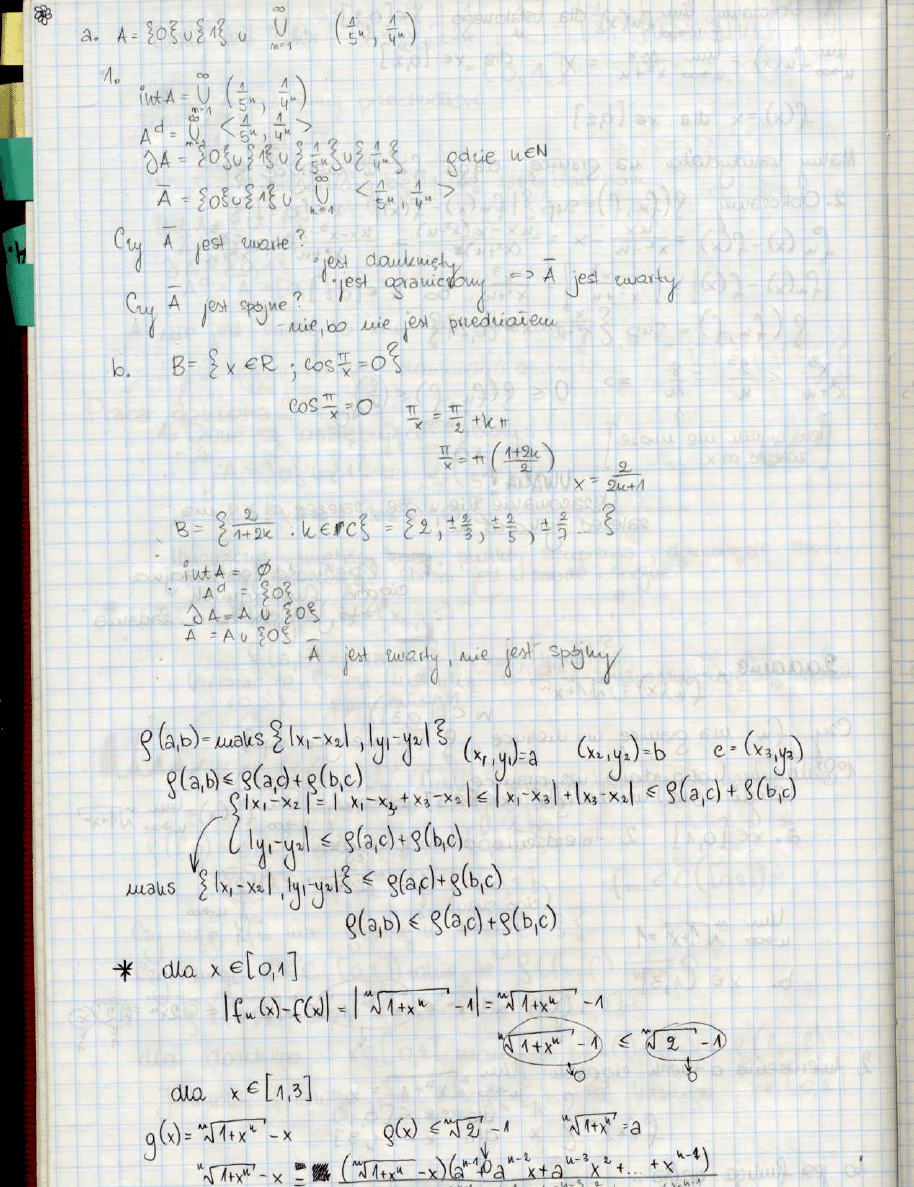 a. A = {0} ∪ {1} ∪ ⋃_{n=1}^{∞} (1/5^n, 1/4^n)
1.
int A = ⋃_{n=1}^{∞} (1/5^n, 1/4^n)
A^d = ⋃_{n=1}^{∞} <1/5^n, 1/4^n>
∂A = {0} ∪ {1} ∪ {1/5^n} ∪ {1/4^n} gdzie n∈N
A̅ = {0} ∪ {1} ∪ ⋃_{n=1}^{∞} <1/5^n, 1/4^n>
Czy A̅ jest zwarte?
· jest domknięty
· jest ograniczony => A̅ jest zwarty
Czy A̅ jest spójne?
- nie, bo nie jest przedziałem
b. B = {x ∈ R ; cos π/x = 0}
cos π/x = 0 π/x = π/2 + kπ
π/x = π((1+2k)/2)
x = 2/(2k+1)
B = {2/(1+2k) : k ∈ C} = {2, ±2/3, ±2/5, ±2/7 ...}
int A = ∅
A^d = {0}
∂A = A ∪ {0}
A̅ = A ∪ {0}
A̅ jest zwarty, nie jest spójny
ϱ(a,b) = maks {|x₁-x₂|, |y₁-y₂|} (x₁,y₁)=a (x₂,y₂)=b c=(x₃,y₃)
ϱ(a,b) ≤ ϱ(a,c) + ϱ(b,c)
{ |x₁-x₂| = |x₁-x₃+x₃-x₂| ≤ |x₁-x₃| + |x₃-x₂| ≤ ϱ(a,c) + ϱ(b,c)
|y₁-y₂| ≤ ϱ(a,c) + ϱ(b,c)
maks {|x₁-x₂|, |y₁-y₂|} ≤ ϱ(a,c) + ϱ(b,c)
ϱ(a,b) ≤ ϱ(a,c) + ϱ(b,c)
* dla x ∈ [0,1]
|fₙ(x) - f(x)| = |ⁿ√(1+xⁿ) - 1| = ⁿ√(1+xⁿ) - 1
ⁿ√(1+xⁿ) - 1 ≤ ⁿ√2 - 1
↓0 ↓0
dla x ∈ [1,3]
g(x) = ⁿ√(1+xⁿ) - x ϱ(x) ≤ ⁿ√2 - 1 ⁿ√(1+xⁿ) = a
↓0
ⁿ√(1+xⁿ) - x = (ⁿ√(1+xⁿ) - x)(a^{n-1} + a^{n-2}x + a^{n-3}x² + ... + x^{n-1})